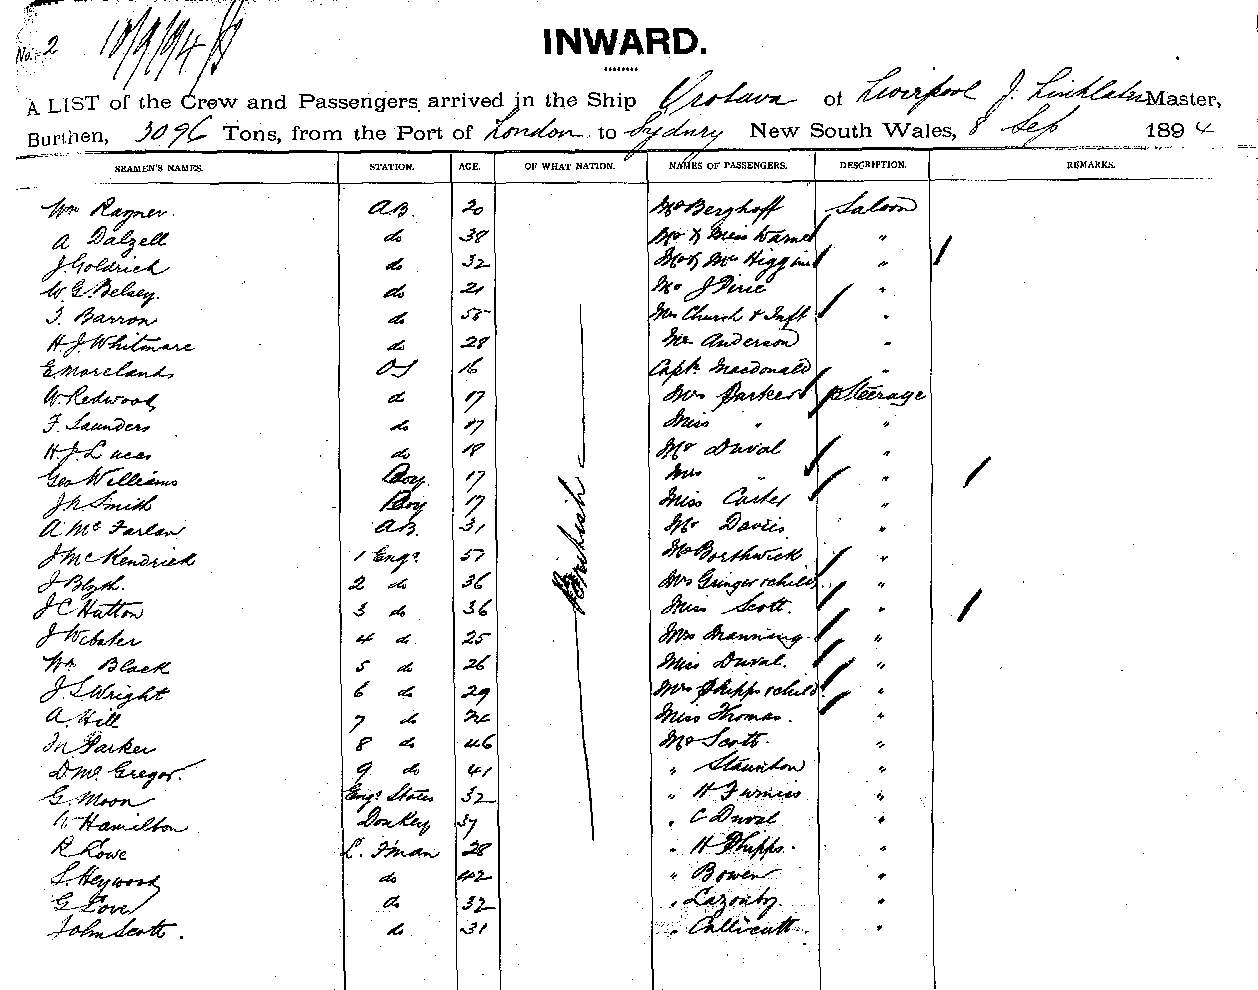 No. 2 18/9/94
INWARD.
A LIST of the Crew and Passengers arrived in the Ship Orotava of Liverpool J. Linklater Master,
Burthen, 3096 Tons, from the Port of London to Sydney New South Wales, 8 Sep 1894
SEAMEN'S NAMES. STATION. AGE. OF WHAT NATION. NAMES OF PASSENGERS. DESCRIPTION. REMARKS.
Wm Rayner. AB. 20 Mr Berghoff Saloon
A Dalzell do 38 Mr & Miss Warne "
J Goldrick do 32 Mr & Mrs Higgins "
W.G. Belsey. do 21 Mr J Pirie "
T. Barron do 55 Mrs Church & Inft "
H.J. Whitmore do 28 Mr Anderson "
E Morelands OS 16 Capt. Macdonald "
W Redwood do 17 Mrs Parker Steerage
F. Saunders do 17 Miss " "
H.J. Lucas do 18 Mr Duval "
Geo Williams Boy 17 Mrs " "
J.R Smith Boy 17 Miss Carter "
A McFarlan AB. 31 Mr Davies "
J McKendrick 1 Engr. 57 Mr Borthwick "
J Blyth. 2 do 36 Mrs Gringer & child "
J C Hutton 3 do 36 Miss Scott. "
J Webster 4 do 25 Mrs Manning "
Wm Black 5 do 26 Miss Duval. "
J S Wright 6 do 29 Mrs Phipps & child "
A Hill 7 do Miss Thomas. "
Parker 8 do 46 Mr Scott. "
D McGregor. 9 do 41 " Staunton "
G Moon Engr. Stores 32 " H Furniss "
A Hamilton Donkey 37 " C Duval "
R Rowe L. F'man 28 " H Phipps. "
S. Heywood do 42 " Bowen "
G Love do 32 " Lazonby "
John Scott. do 31 " Callicutt. "
British